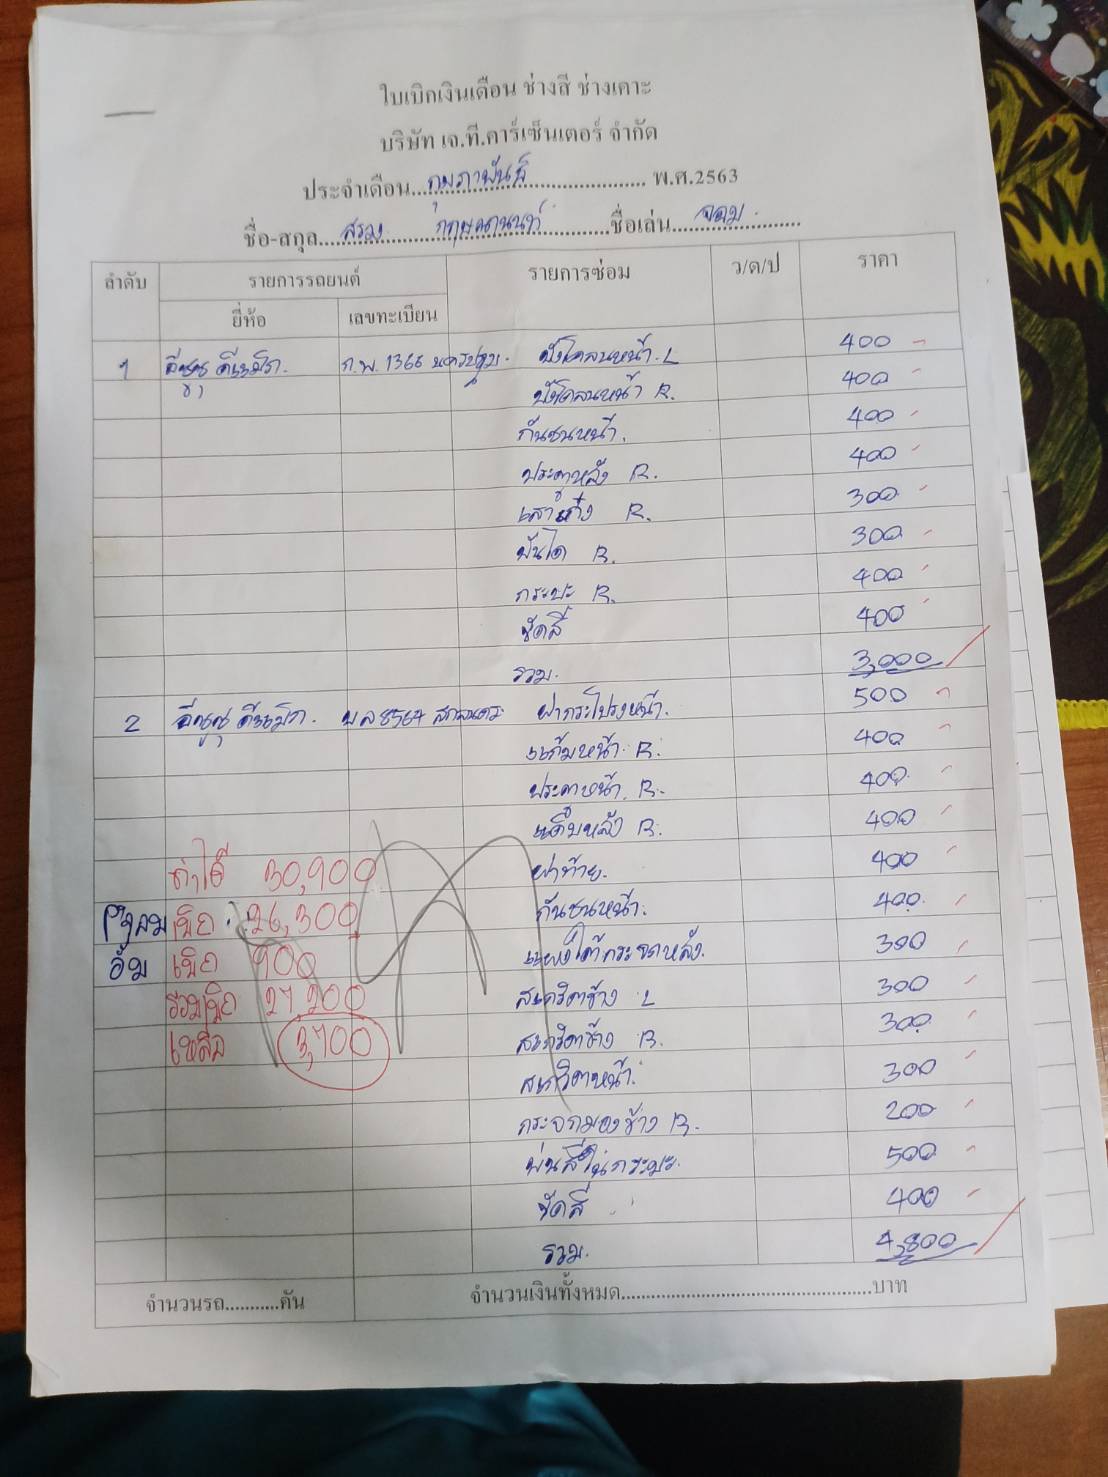 ใบเบิกเงินเดือน ช่างสี ช่างเคาะ
บริษัท เจ.ที.คาร์เซ็นเตอร์ จำกัด
ประจำเดือน กุมภาพันธ์ พ.ศ.2563
ชื่อ-สกุล ชื่อเล่น จอม
ลำดับ รายการรถยนต์ รายการซ่อม ว/ด/ป ราคา
ยี่ห้อ เลขทะเบียน
1 อีซูซุ ดีแมค ก.พ. 1366 นครปฐม บังโคลนหน้า L 400
บังโคลนหน้า R. 400
กันชนหน้า. 400
ประตูหลัง R. 400
เสาเก๋ง R. 300
บันได R. 300
กระบะ R. 400
ขัดสี 400
รวม. 3,000
2 อีซูซุ ดีแมค. บล 8567 สกลนคร ฝากระโปรงหน้า. 500
แก้มหน้า R. 400
ประตูหน้า R. 400
แค็บหลัง R. 400
ทำได้ 30,900 ฝาท้าย. 400
จอม เบิก 26,300 กันชนหน้า. 400
อั๋ม เบิก 900 แผงใต้กระจกหลัง. 300
รวมเบิก 27,200 สเกิร์ตข้าง L 300
เหลือ 3,700 สเกิร์ตข้าง R. 300
สเกิร์ตหน้า. 300
กระจกมองข้าง R. 200
พ่นสีในกระบะ. 500
ขัดสี 400
รวม. 4,800
จำนวนรถ...........คัน จำนวนเงินทั้งหมด..................................................บาท